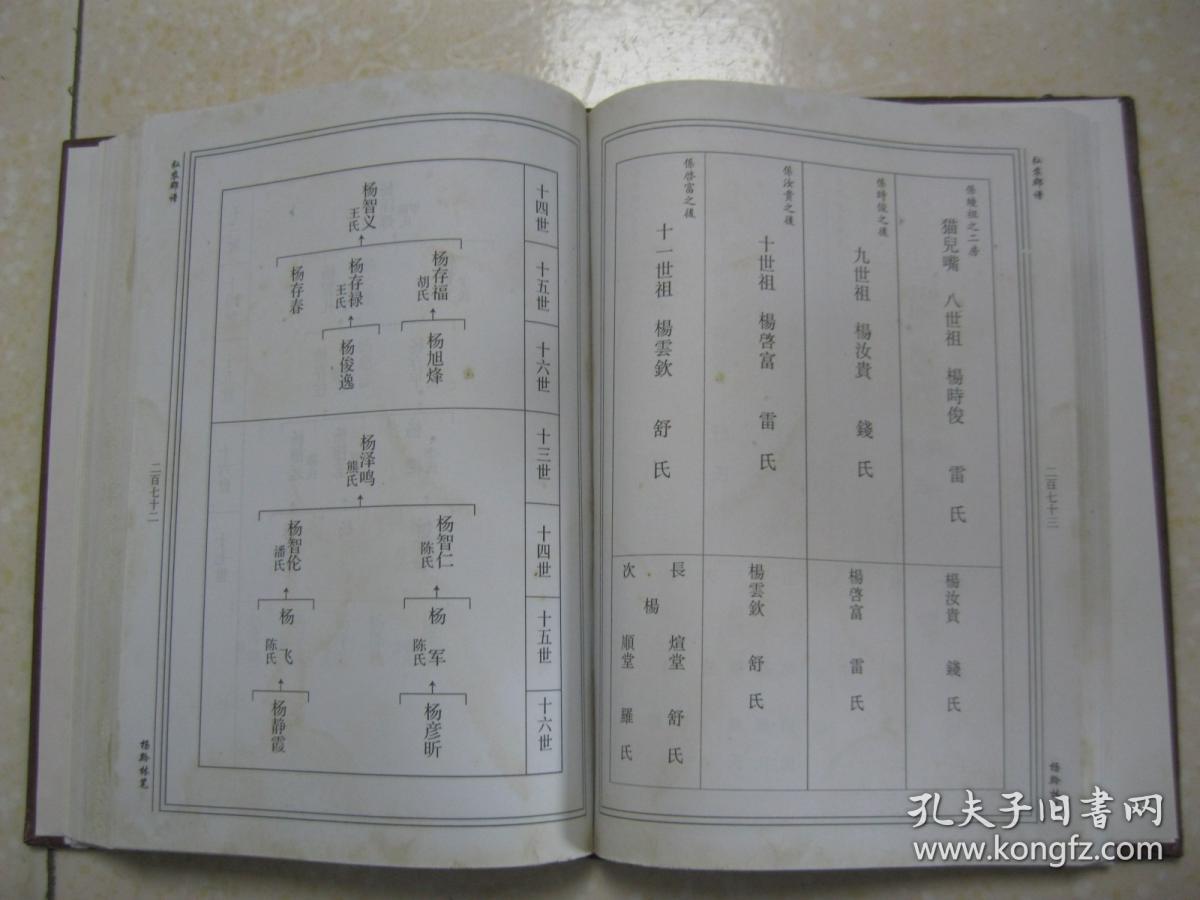 二百七十三
係曉祖之二房
猫兒嘴 八世祖 楊時俊 雷氏
楊汝貴 錢氏
係時俊之後
九世祖 楊汝貴 錢氏
楊啓富 雷氏
係汝貴之後
十世祖 楊啓富 雷氏
楊雲欽 舒氏
係啓富之後
十一世祖 楊雲欽 舒氏
長 煊堂 舒氏
楊
次 順堂 羅氏
十四世
十五世
十六世
杨智义
王氏
杨存福
胡氏
杨存禄
王氏
杨存春
杨旭烽
杨俊逸
十三世
十四世
十五世
十六世
杨泽鸣
熊氏
杨智仁
陈氏
杨智伦
潘氏
杨军
陈氏
杨飞
陈氏
杨彦昕
杨静霞
二百七十二
孔夫子旧书网
www.kongfz.com